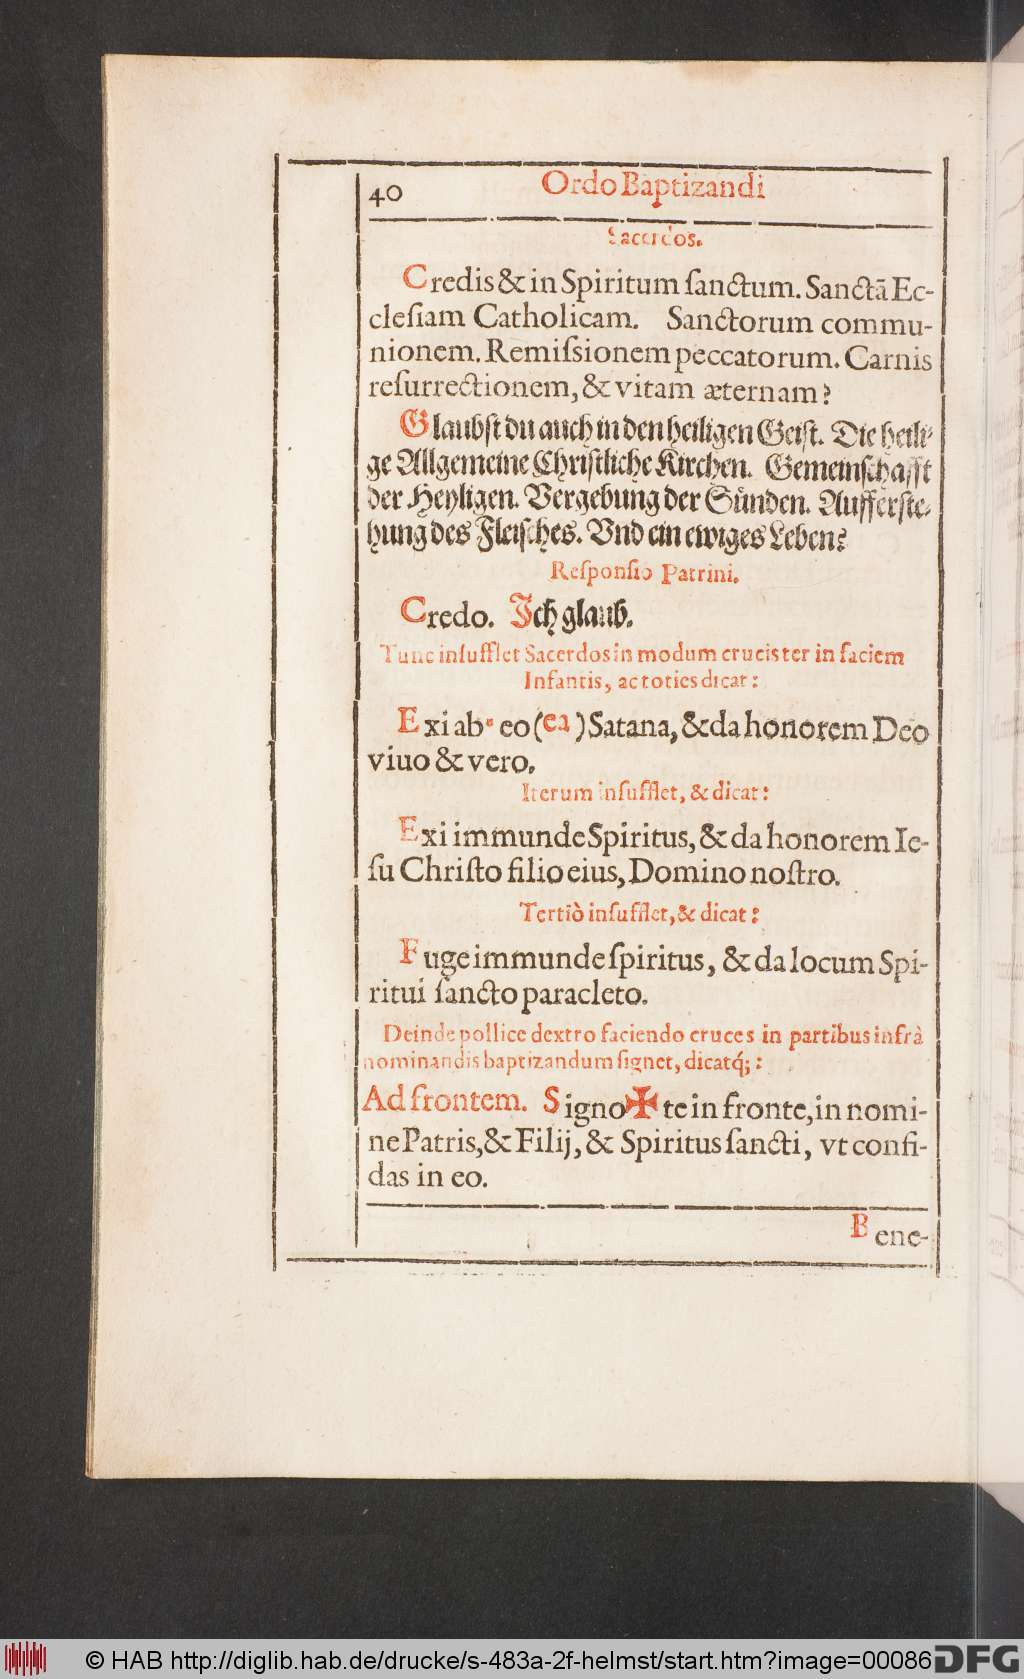 40
Ordo Baptizandi
Sacerdos.
Credis & in Spiritum ſanctum. Sanctã Ec-
cleſiam Catholicam. Sanctorum commu-
nionem. Remiſsionem peccatorum. Carnis
reſurrectionem, & vitam æternam?
Glaubſt du auch in den heiligen Geiſt. Die heili-
ge Allgemeine Chriſtliche Kirchen. Gemeinſchafft
der Heyligen. Vergebung der Sünden. Aufferſte-
hung des Fleiſches. Vnd ein ewiges Leben?
Reſponſio Patrini.
Credo. Ich glaub.
Tunc inſufflet Sacerdos in modum crucis ter in faciem
Infantis, ac toties dicat:
Exi ab * eo (ea) Satana, & da honorem Deo
viuo & vero.
Iterum inſufflet, & dicat:
Exi immunde Spiritus, & da honorem Ie-
ſu Chriſto filio eius, Domino noſtro.
Tertiò inſufflet, & dicat:
Fuge immunde ſpiritus, & da locum Spi-
ritui ſancto paracleto.
Deinde pollice dextro faciendo cruces in partibus infrà
nominandis baptizandum ſignet, dicatq́;:
Ad frontem. Signo ✠ te in fronte, in nomi-
ne Patris, & Filij, & Spiritus ſancti, vt confi-
das in eo.
Bene-
© HAB http://diglib.hab.de/drucke/s-483a-2f-helmst/start.htm?image=00086
DFG